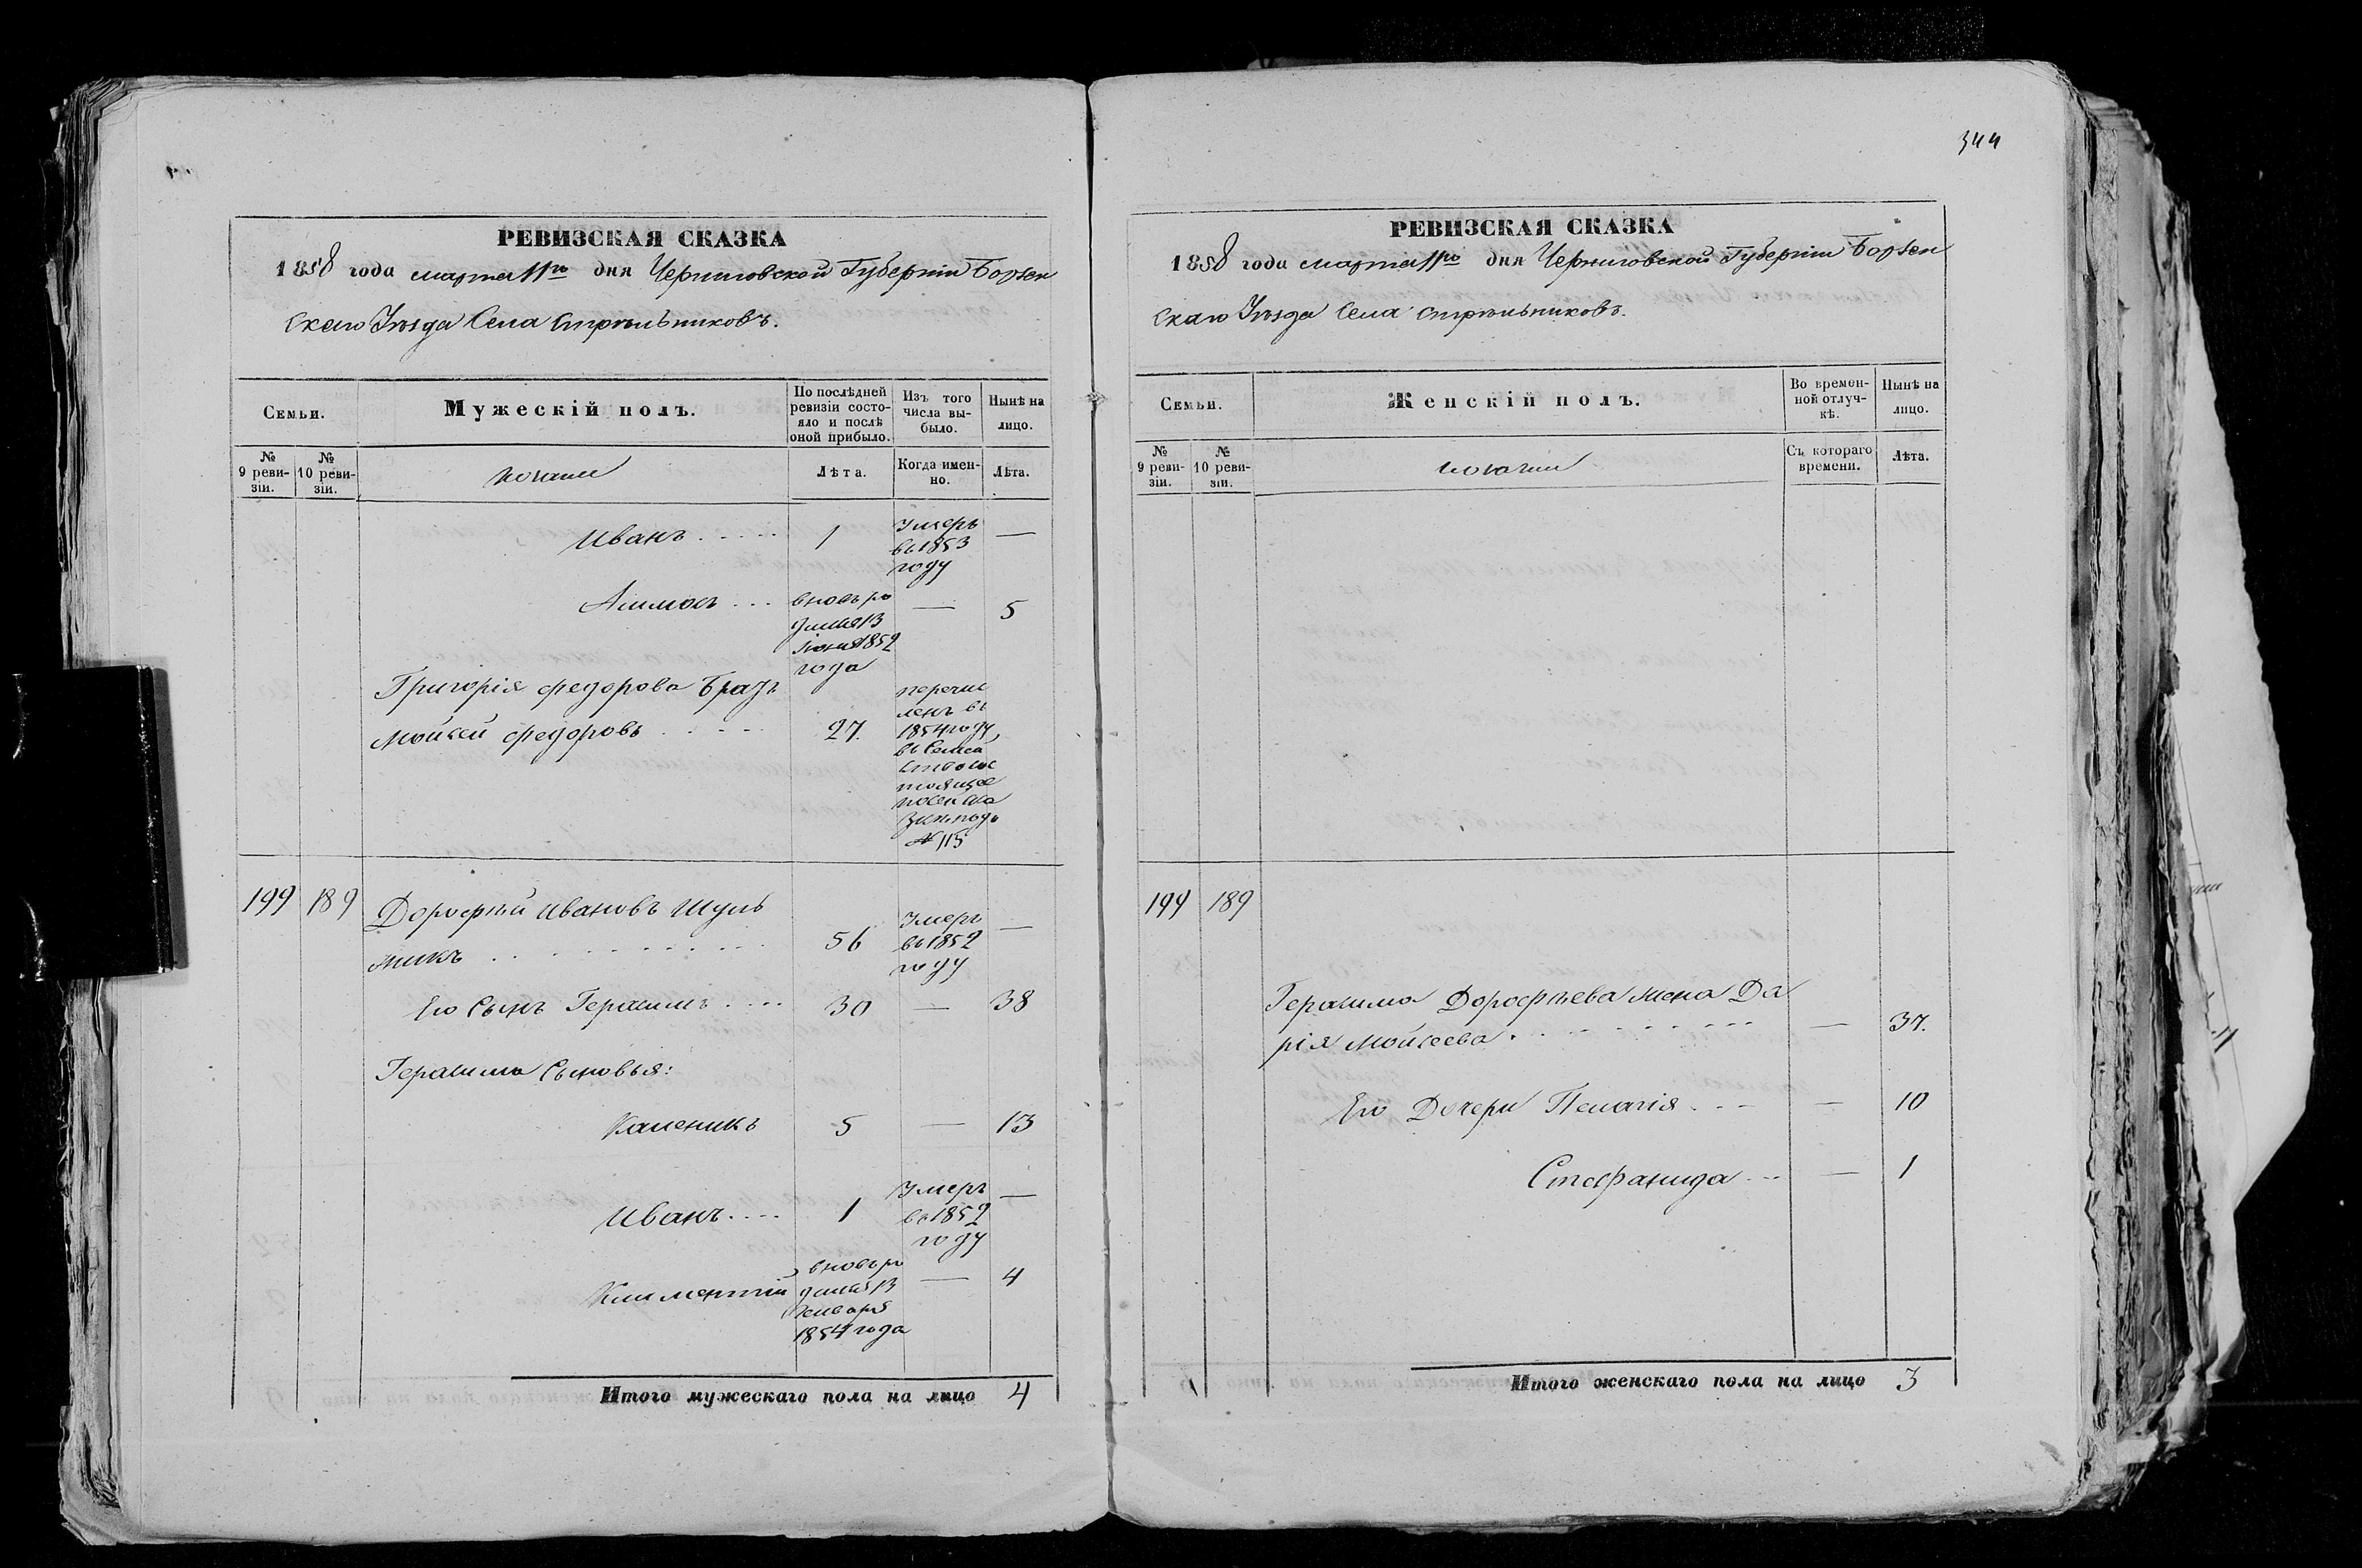 344
РЕВИЗСКАЯ СКАЗКА
1858 года марта 11го дня Черниговской Губерніи Борзен
скаго Уѣзда Села Стрѣльниковъ.
Семьи.
Мужескій полъ.
По послѣдней ревизіи состояло и послѣ оной прибыло.
Изъ того числа выбыло.
Нынѣ на лицо.
№ 9 ревизіи.
№ 10 ревизіи.
козаки
Лѣта.
Когда именно.
Лѣта.
Иванъ 1 Умеръ въ 1853 году —
вновь ро
дился 13
Іюня 1852
года
— 5
Григорія Федорова братъ
Мойсей Федоровъ 27.
перечис
ленъ въ
1854 году
въ
№ 115
199 189 Дорофѣй Ивановъ Шуль
56
Умеръ
въ 1852
году
—
Его Сынъ Герасимъ 30 — 38
Герасима Сыновья:
Каленикъ 5 — 13
Иванъ 1
Умеръ
въ 1852
году
—
Климентій
вновь ро
дился 13
Января
1854 года
— 4
Итого мужескаго пола на лицо 4
РЕВИЗСКАЯ СКАЗКА
1858 года марта 11го дня Черниговской Губерніи Борзен
скаго Уѣзда Села Стрѣльниковъ.
Семьи.
Женскій полъ.
Во временной отлучкѣ.
Нынѣ на лицо.
№ 9 ревизіи.
№ 10 ревизіи.
козачки
Съ котораго времени.
Лѣта.
199 189
Герасима Дорофѣева жена Да
рія Мойсеева — 37.
Его Дочери Пелагія — 10
Стефанида — 1
Итого женскаго пола на лицо 3